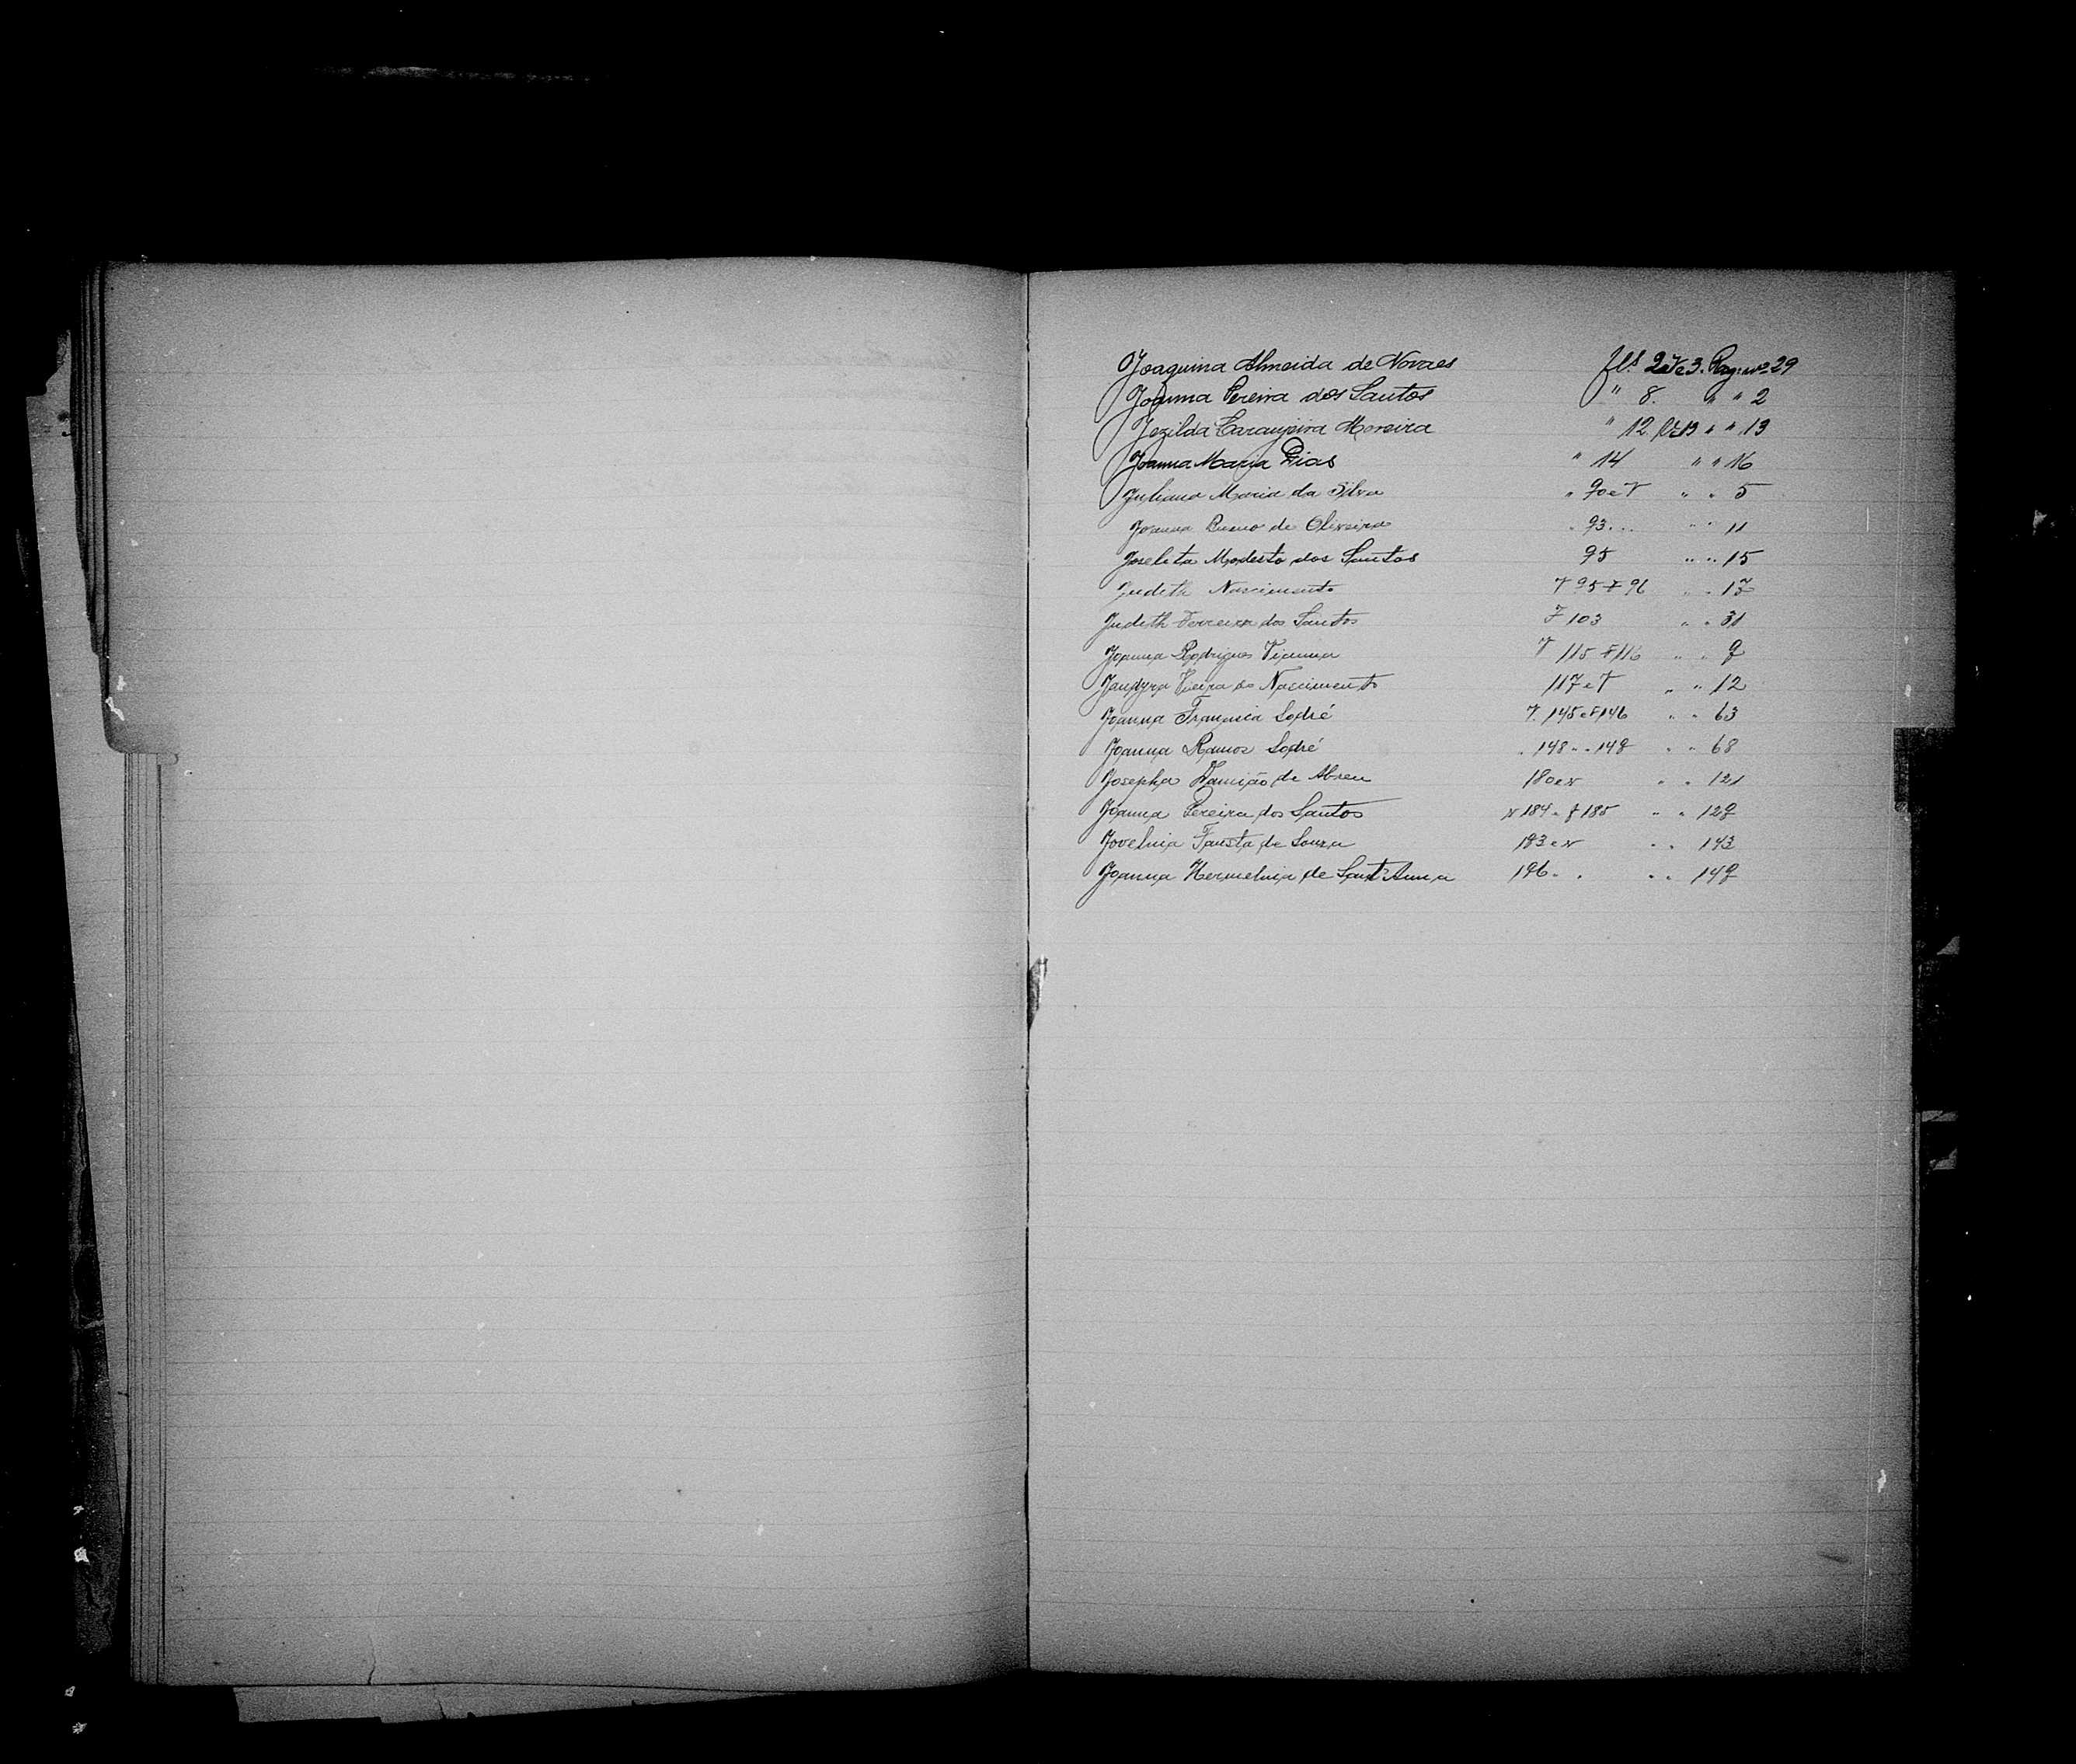 Joaquina Almeida de Novaes fls 2 V e 3. Reg. nº 29
Joanna Pereira dos Santos " 8. " " 2
Jezilda Laranjeira Moreira " 12 " " 13
Joanna Maria Dias " 14 " " 16
Juliana Maria da Silva " 90 e V " " 5
Joanna Bueno de Oliveira " 93... " " 11
Joselita Modesto dos Santos 95 " " 15
Judith Nascimento V 95 F 96 " " 17
Judith Ferreira dos Santos F 103 " " 31
Joanna Rodrigues Vianna V 115 F 116 " " 9
Jandyra Vieira do Nascimento 117 e V " " 12
Joanna Francisca Sodré V. 145 e F 146 " " 63
Joanna Ramos Sodré " 148 " " 149 " " 68
Josepha Damião de Abreu 180 e v " " 121
Joanna Pereira dos Santos v 184 " f 185 " " 129
Jovelina Fausta de Souza 193 e v " " 143
Joanna Hermelina de Sant'Anna 196 " . " " 149